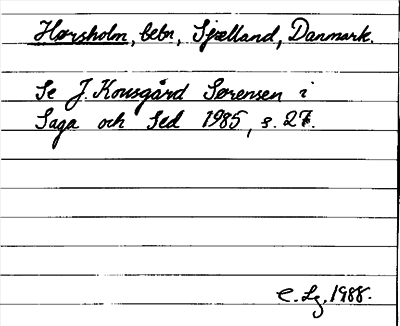 Hørsholm, bebn, Sjælland, Danmark.
Se J. Kousgård Sørensen i
Saga och Sed 1985, s. 27.
C. Lg. 1988.